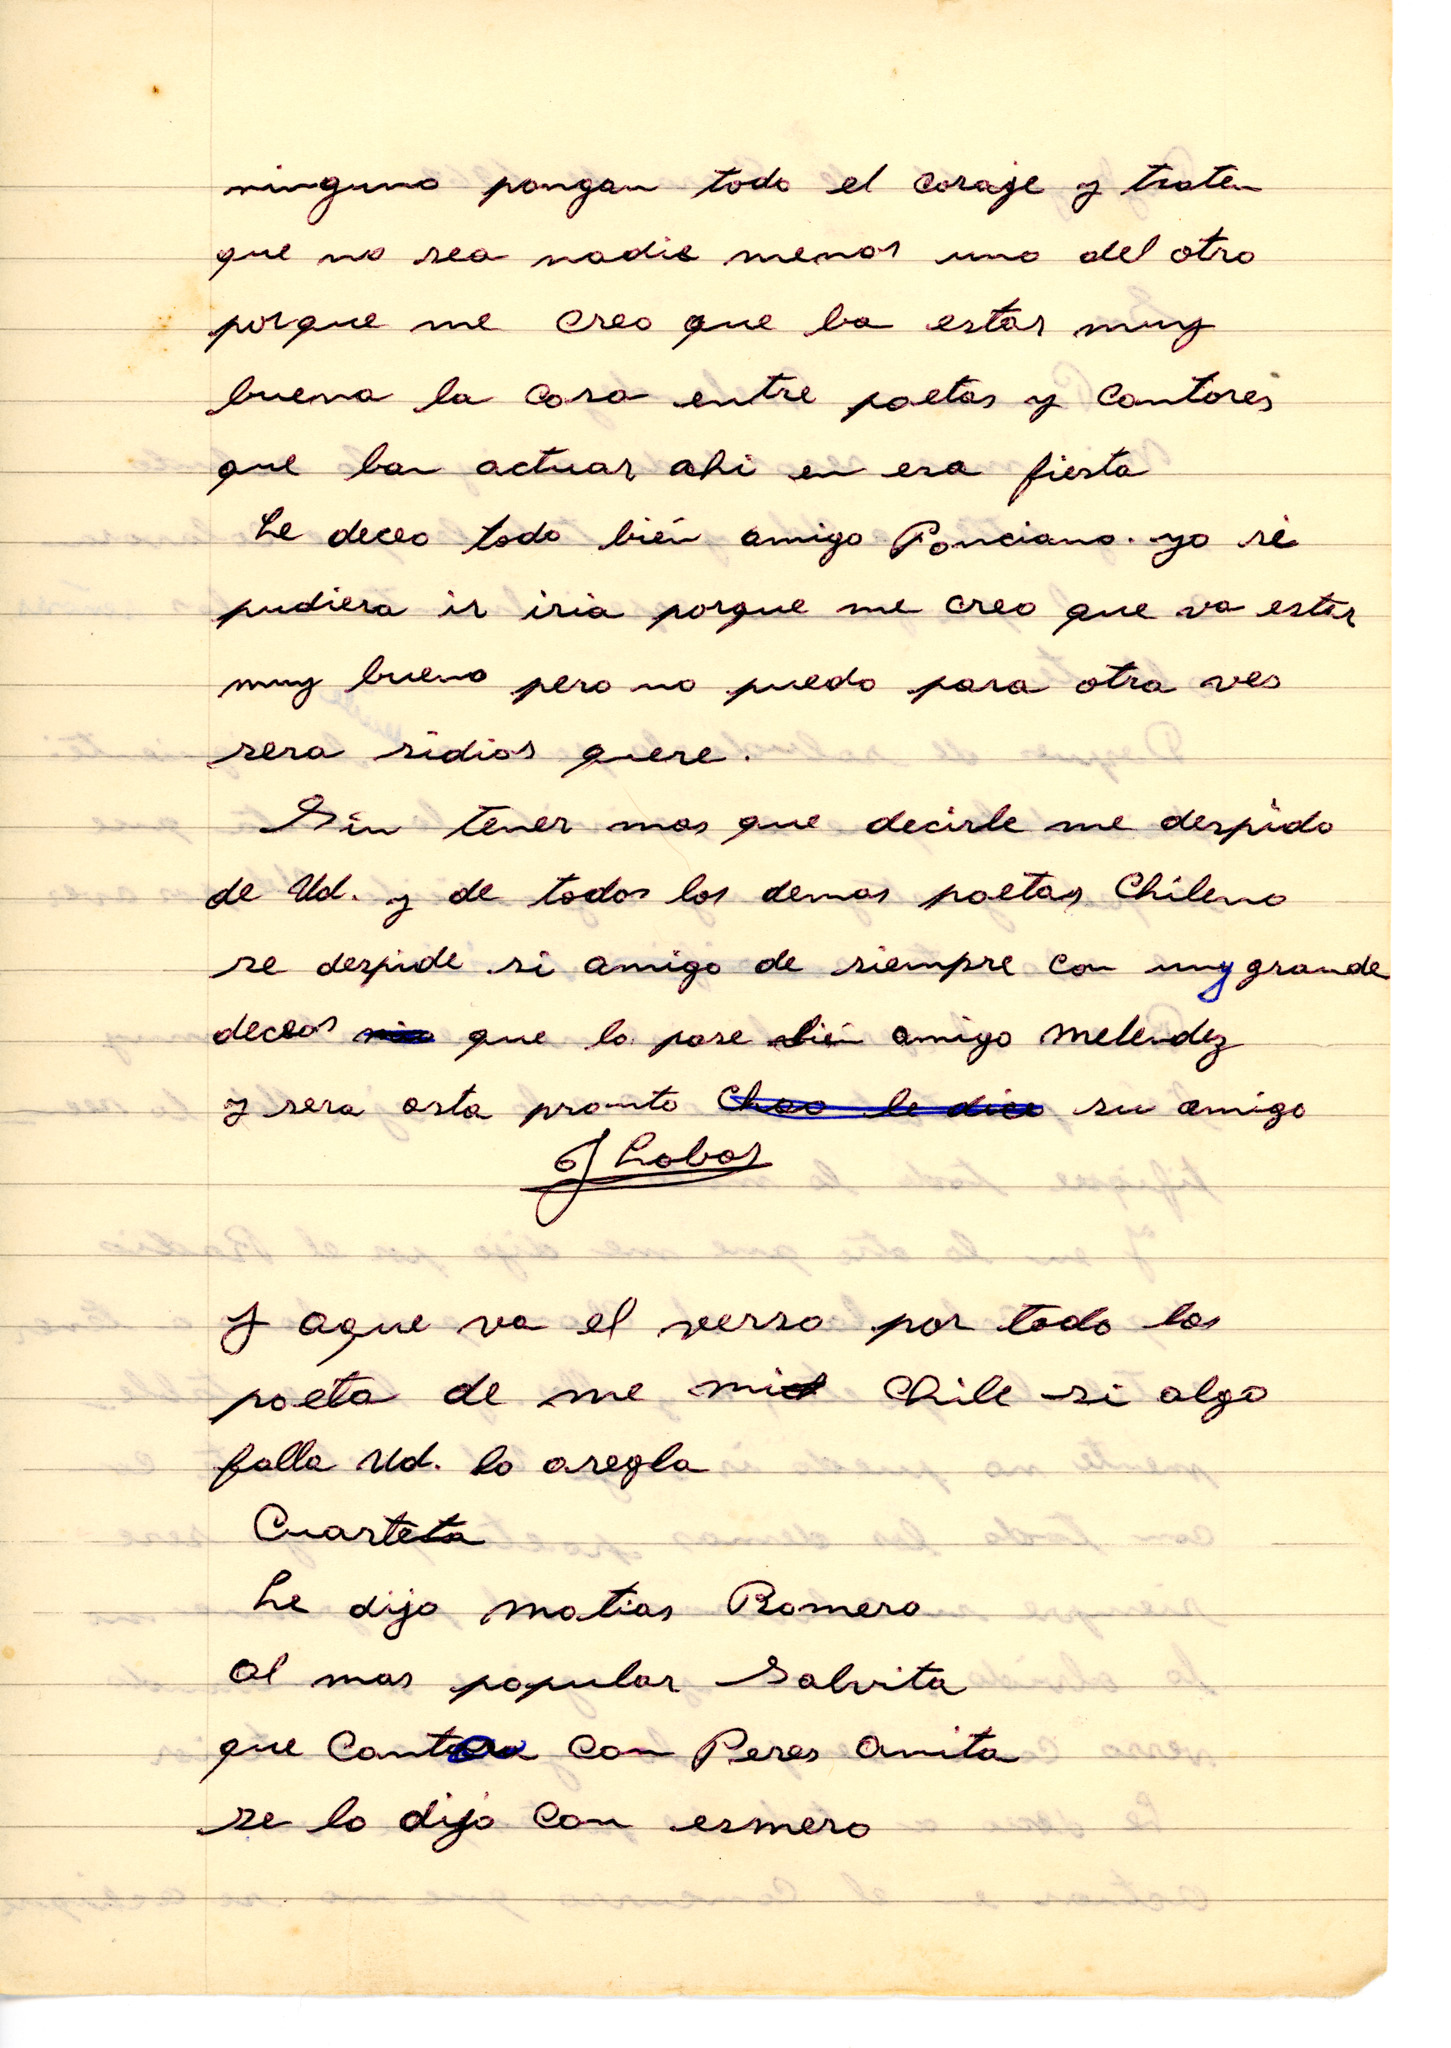 ninguno pongan todo el coraje y traten
que no sea nadie menos uno del otro
porque me creo que ba estar muy
buena la cosa entre poetas y cantores
que ban actuar ahi en esa fiesta
Le deceo todo bién amigo Ponciano. yo si
pudiera ir iria porque me creo que va estar
muy bueno pero no puedo para otra ves
sera sidios quere.
Sin tener mas que decirle me despido
de Ud. y de todos los demas poetas Chileno
se despide si amigo de siempre con muy grande
deceos que lo pase bien amigo Melendez
y sera asta pronto Chao le dice su amigo
J Lobos
Y aque va el verso por todo los
poeta de me Chile si algo
falla Ud. lo aregla
Cuarteta
Le dijo Matias Romero
al mas popular Salvita
que Cantara con Peres Anita
se lo dijo con esmero